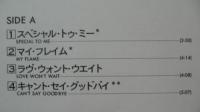 SIDE A
1 スペシャル・トゥ・ミー*
SPECIAL TO ME (3:30)
2 マイ・フレイム*
MY FLAME (4:14)
3 ラヴ・ウォント・ウエイト
LOVE WON'T WAIT (4:08)
4 キャント・セイ・グッドバイ**
CAN'T SAY GOODBYE (5:07)